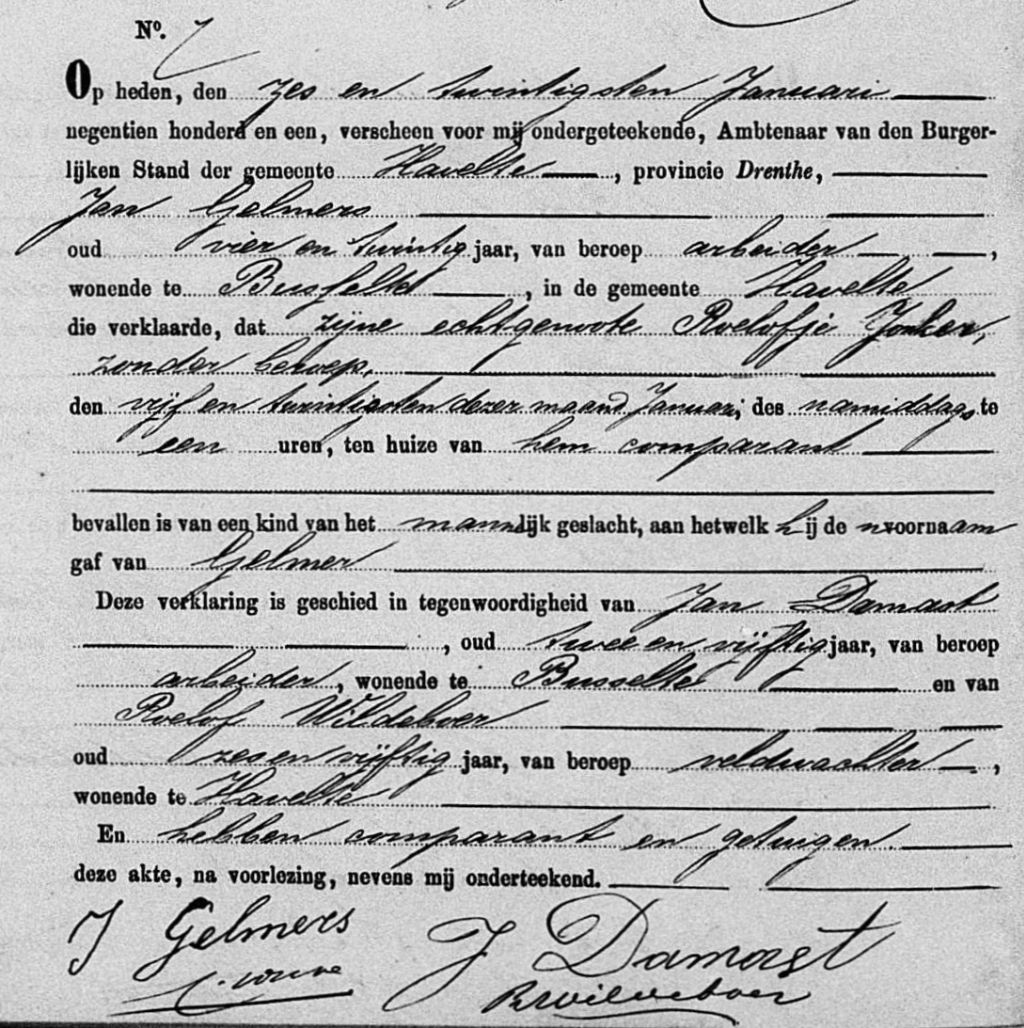 No. 7
Op heden, den zes en twintigsten Januari
negentien honderd en een, verscheen voor mij ondergeteekende, Ambtenaar van den Burger-
lijken Stand der gemeente Havelte, provincie Drenthe,
Jan Gelmers
oud vier en twintig jaar, van beroep arbeider,
wonende te Busselte, in de gemeente Havelte
die verklaarde, dat zijne echtgenoote Roelofje Jonker,
zonder beroep,
den vijf en twintigsten dezer maand Januari, des namiddags te
een uren, ten huize van hem comparant
bevallen is van een kind van het mannelijk geslacht, aan hetwelk hij de n voornaam
gaf van Gelmer
Deze verklaring is geschied in tegenwoordigheid van Jan Damast
, oud twee en vijftig jaar, van beroep
arbeider, wonende te Busselte en van
Roelof Wildeboer
oud zes en vijftig jaar, van beroep veldwachter,
wonende te Havelte
En hebben comparant en getuigen
deze akte, na voorlezing, nevens mij onderteekend.
J Gelmers J Damast
R Wildeboer